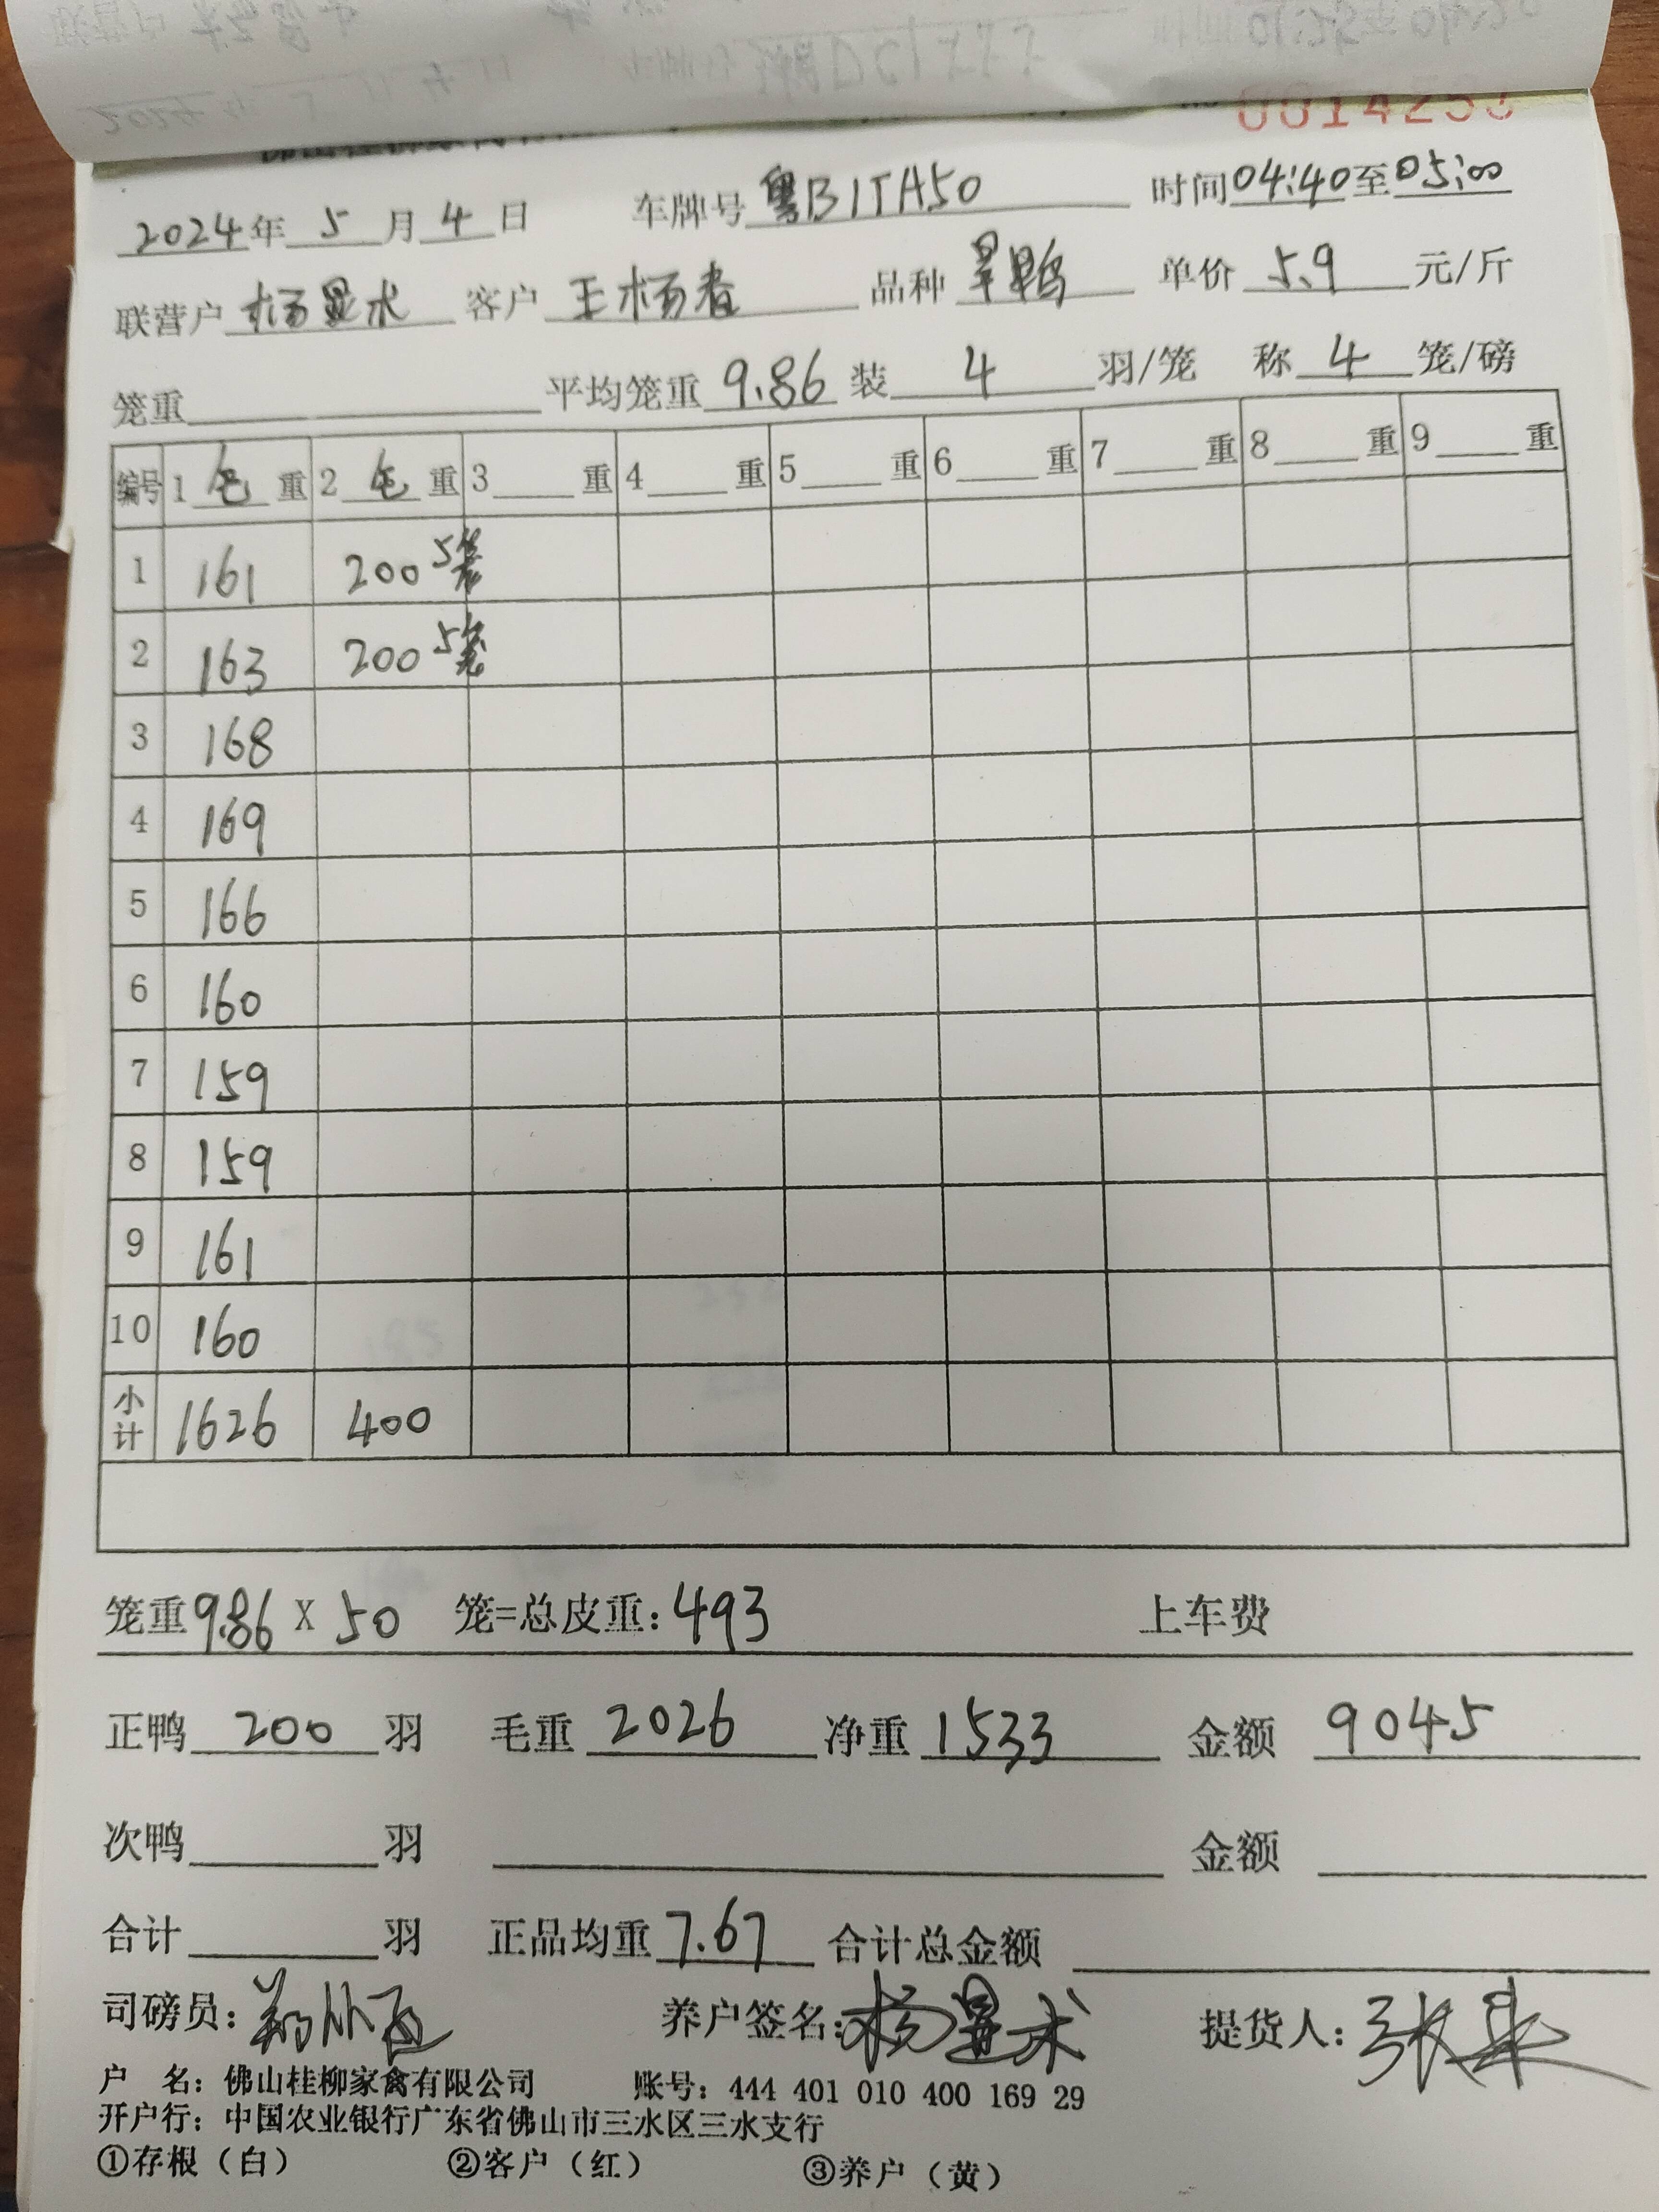 0014253
2024年 5 月 4 日 车牌号 粤B1TA50 时间 04:40 至 05:00
联营户 杨显术 客户 王杨春 品种 旱鸭 单价 5.9 元/斤
笼重 平均笼重 9.86 装 4 羽/笼 称 4 笼/磅
编号 1 毛 重 2 毛 重 3 重 4 重 5 重 6 重 7 重 8 重 9 重
1 161 200 5笼
2 163 200 5笼
3 168
4 169
5 166
6 160
7 159
8 159
9 161
10 160
小计 1626 400
笼重 9.86 X 50 笼=总皮重: 493 上车费
正鸭 200 羽 毛重 2026 净重 1533 金额 9045
次鸭 羽 金额
合计 羽 正品均重 7.67 合计总金额
司磅员: 养户签名: 杨显术 提货人:
户 名: 佛山桂柳家禽有限公司 账号: 444 401 010 400 169 29
开户行: 中国农业银行广东省佛山市三水区三水支行
①存根（白） ②客户（红） ③养户（黄）